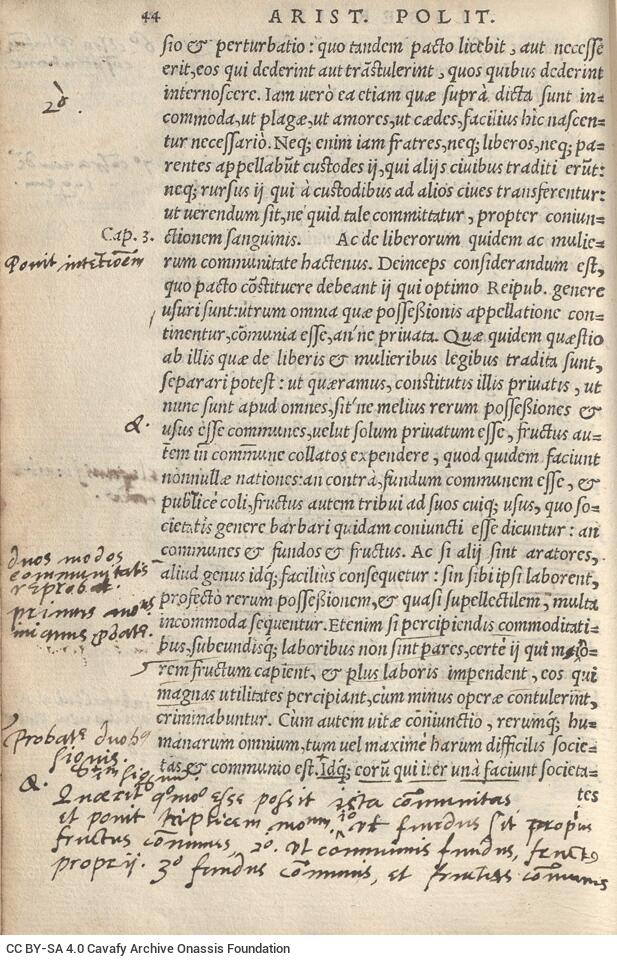 44 ARIST. POLIT.
sio & perturbatio: quo tandem pacto licebit, aut necesse
erit, eos qui dederint aut trãstulerint, quos quibus dederint
internoscere. Iam uerò ea etiam quæ suprà dicta sunt in=
commoda, ut plagæ, ut amores, ut cædes, facilius hic nascen=
tur necessariò. Neq; enim iam fratres, neq; liberos, neq; pa=
rentes appellabũt custodes ij, qui alijs ciuibus traditi erũt:
neq; rursus ij qui à custodibus ad alios ciues transferentur:
ut uerendum sit, ne quid tale committatur, propter coniun=
Cap. 3.
ctionem sanguinis. Ac de liberorum quidem ac mulie=
Ponit intētionem
rum communitate hactenus. Deinceps considerandum est,
quo pacto cõstituere debeant ij qui optimo Reipub. genere
usuri sunt: utrum omnia quæ possessionis appellatione con=
tinentur, cõmunia esse, an'ne priuata. Quæ quidem quæstio
ab illis quæ de liberis & mulieribus legibus tradita sunt,
separari potest: ut quæramus, constitutis illis priuatis, ut
nunc sunt apud omnes, sit'ne melius rerum possessiones &
&.
usus esse communes, uelut solum priuatum esse, fructus au=
tem in commune collatos expendere, quod quidem faciunt
nonnullæ nationes: an contrà, fundum communem esse, &
publicè coli, fructus autem tribui ad suos cuiq; usus, quo so=
cietatis genere barbari quidam coniuncti esse dicuntur: an
communes & fundos & fructus. Ac si alij sint aratores,
duos modos
communitatis
reprobat.
aliud genus idq; facilius consequetur: sin sibi ipsi laborent,
primus
profecto rerum possessionem, & quasi supellectilem, multa
incommoda sequentur. Etenim si percipiendis commoditati=
bus, subeundisq; laboribus non sint pares, certè ij qui maio=
rem fructum capient, & plus laboris impendent, eos qui
magnas utilitates percipiant, cùm minus operæ contulerint,
criminabuntur. Cum autem uitæ coniunctio, rerumq; hu=
Probat
manarum omnium, tum uel maximè harum difficilis socie=
tas & communio est. Idq; corũ qui iter unà faciunt societa=
tes
&.
Quærit quomo esse possit ista communitas
et ponit triplicem 1º ut fundus sit proprius
fructus communis, 2º. ut communis fundus, fructus
proprij. 3º fundus communis, et fructus communis
CC BY-SA 4.0 Cavafy Archive Onassis Foundation